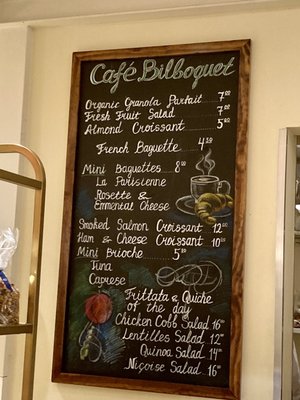 Café Bilboquet
Organic Granola Parfait 7⁰⁰
Fresh Fruit Salad 7⁰⁰
Almond Croissant 5⁵⁰
French Baguette 4⁰⁰
Mini Baguettes 8⁰⁰
La Parisienne
Rosette &
Emmencal Cheese
Smoked Salmon Croissant 12⁰⁰
Ham & Cheese Croissant 10⁰⁰
Mini Brioche 5⁰⁰
Tuna
Caprese
Frittata & Quiche
of the day
Chicken Cobb Salad 16⁰⁰
Lentilles Salad 12⁰⁰
Quinoa Salad 14⁰⁰
Niçoise Salad 16⁰⁰